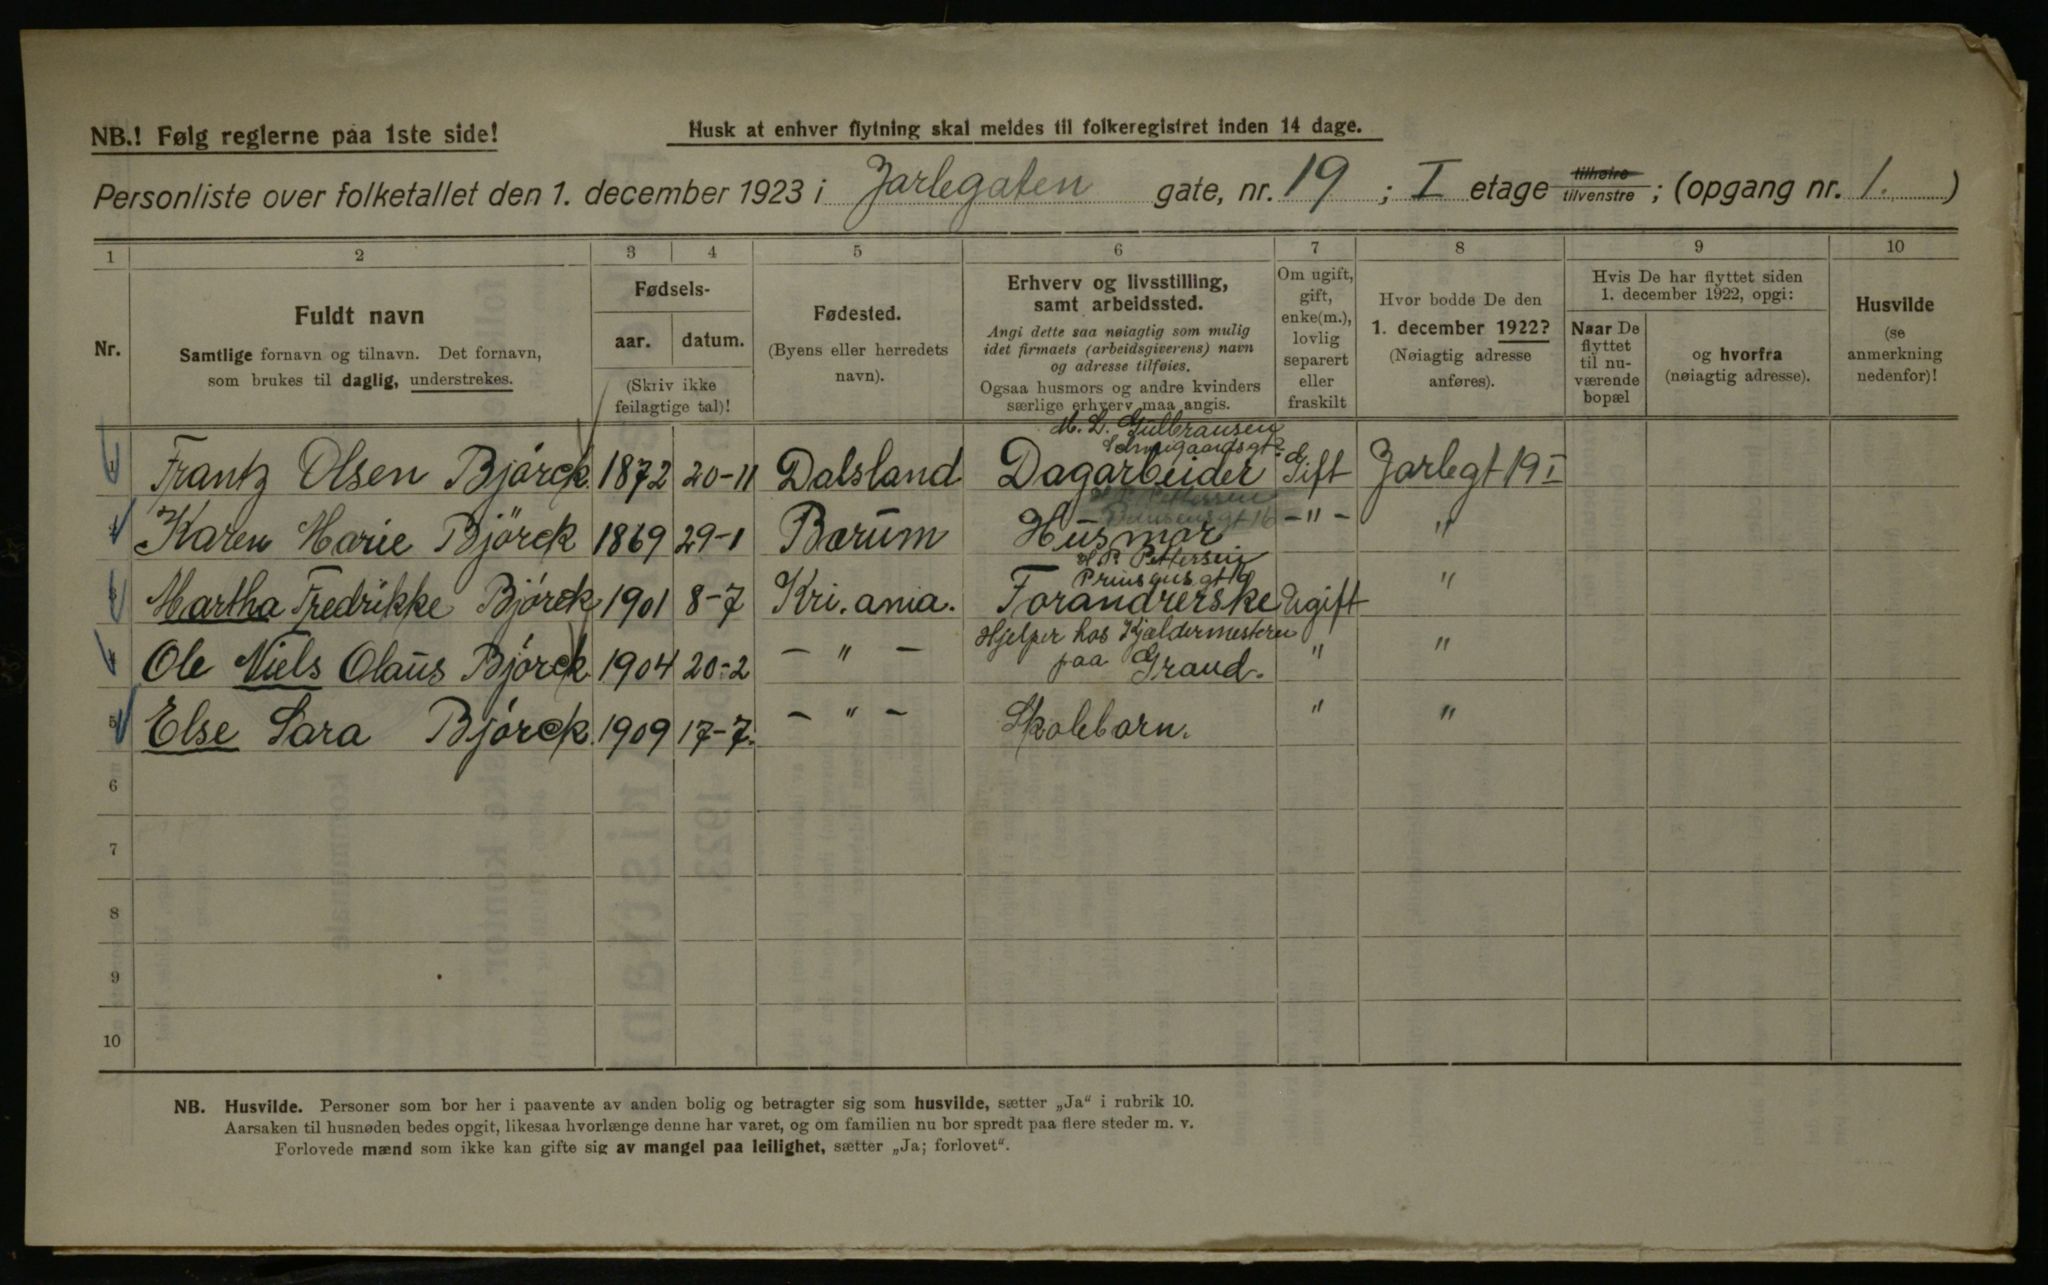 NB.! Følg reglerne paa 1ste side!
Husk at enhver flytning skal meldes til folkeregistret inden 14 dage.
Personliste over folketallet den 1. december 1923 i Jarlegaten gate, nr. 19 ; I etage tilhøire tilvenstre ; (opgang nr. 1. )
1 2 3 4 5 6 7 8 9 10
Nr.
Fuldt navn
Samtlige fornavn og tilnavn. Det fornavn,
som brukes til daglig, understrekes.
Fødsels-
aar. datum.
(Skriv ikke
feilagtige tal)!
Fødested.
(Byens eller herredets
navn).
Erhverv og livsstilling,
samt arbeidssted.
Angi dette saa nøiagtig som mulig
idet firmaets (arbeidsgiverens) navn
og adresse tilføies.
Ogsaa husmors og andre kvinders
særlige erhverv maa angis.
Om ugift,
gift,
enke(m.),
lovlig
separert
eller
fraskilt
Hvor bodde De den
1. december 1922?
(Nøiagtig adresse
anføres).
Hvis De har flyttet siden
1. december 1922, opgi:
Naar De
flyttet
til nu-
værende
bopæl
og hvorfra
(nøiagtig adresse).
Husvilde
(se
anmerkning
nedenfor)!
M. L. Gulbransen
1 Frantz Olsen Bjórck 1872 20-11 Dalsland Dagarbeider Gift Jarlegt 19 I
2 Karen Marie Björck 1869 29-1 Bærum Husmor -"- "
H. P. Pettersen
Prinsensgt 16
3 Martha Fredrikke Bjórck 1901 8-7 Kri.ania. Forandrerske Ugift "
Hjelper hos Kjældermesteren
4 Ole Niels Olaus Bjórck 1904 20-2 - " - paa Grand. " "
5 Else Sara Bjórck. 1909 17-7. - " - Skolebarn. " "
6
7
8
9
10
NB. Husvilde. Personer som bor her i paavente av anden bolig og betragter sig som husvilde, sætter „Ja" i rubrik 10.
Aarsaken til husnøden bedes opgit, likesaa hvorlænge denne har varet, og om familien nu bor spredt paa flere steder m. v.
Forlovede mænd som ikke kan gifte sig av mangel paa leilighet, sætter „Ja; forlovet".